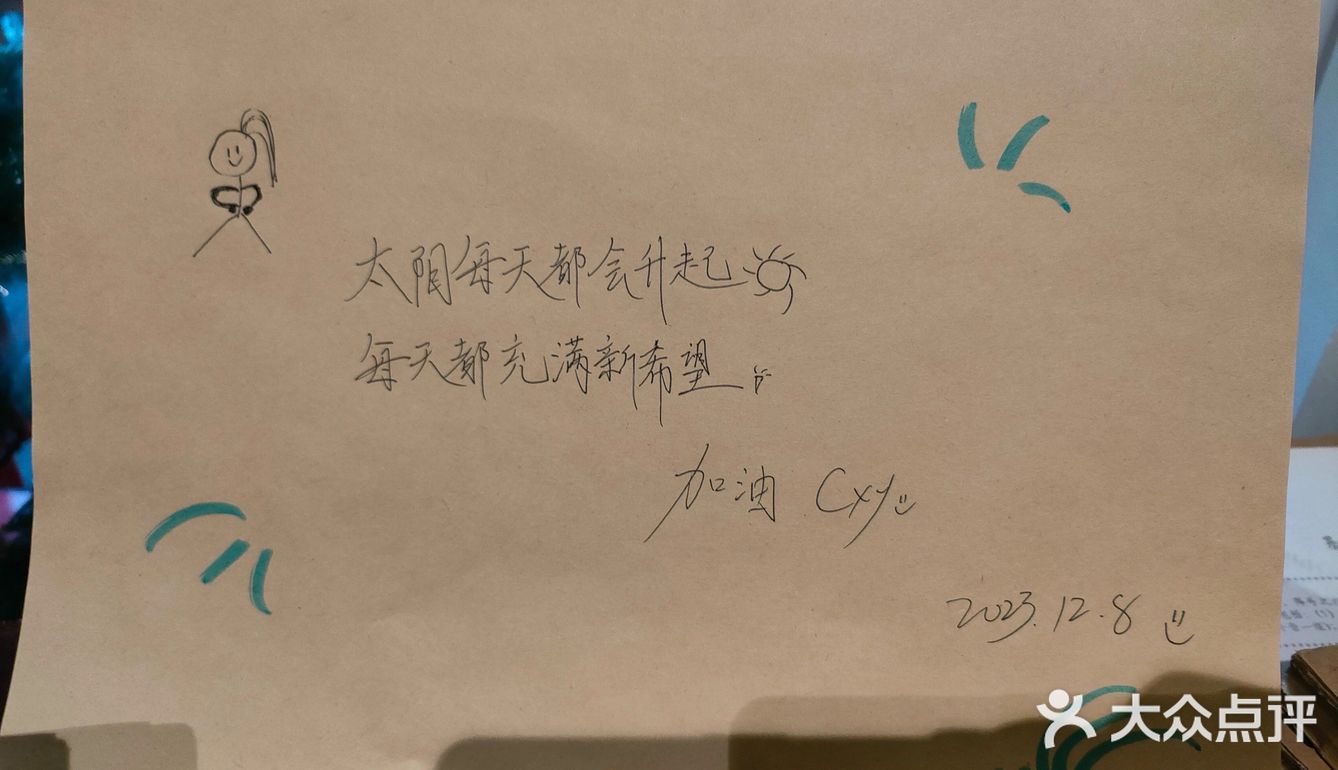 太阳每天都会升起
每天都充满新希望
加油 Cxy
2023.12.8
大众点评